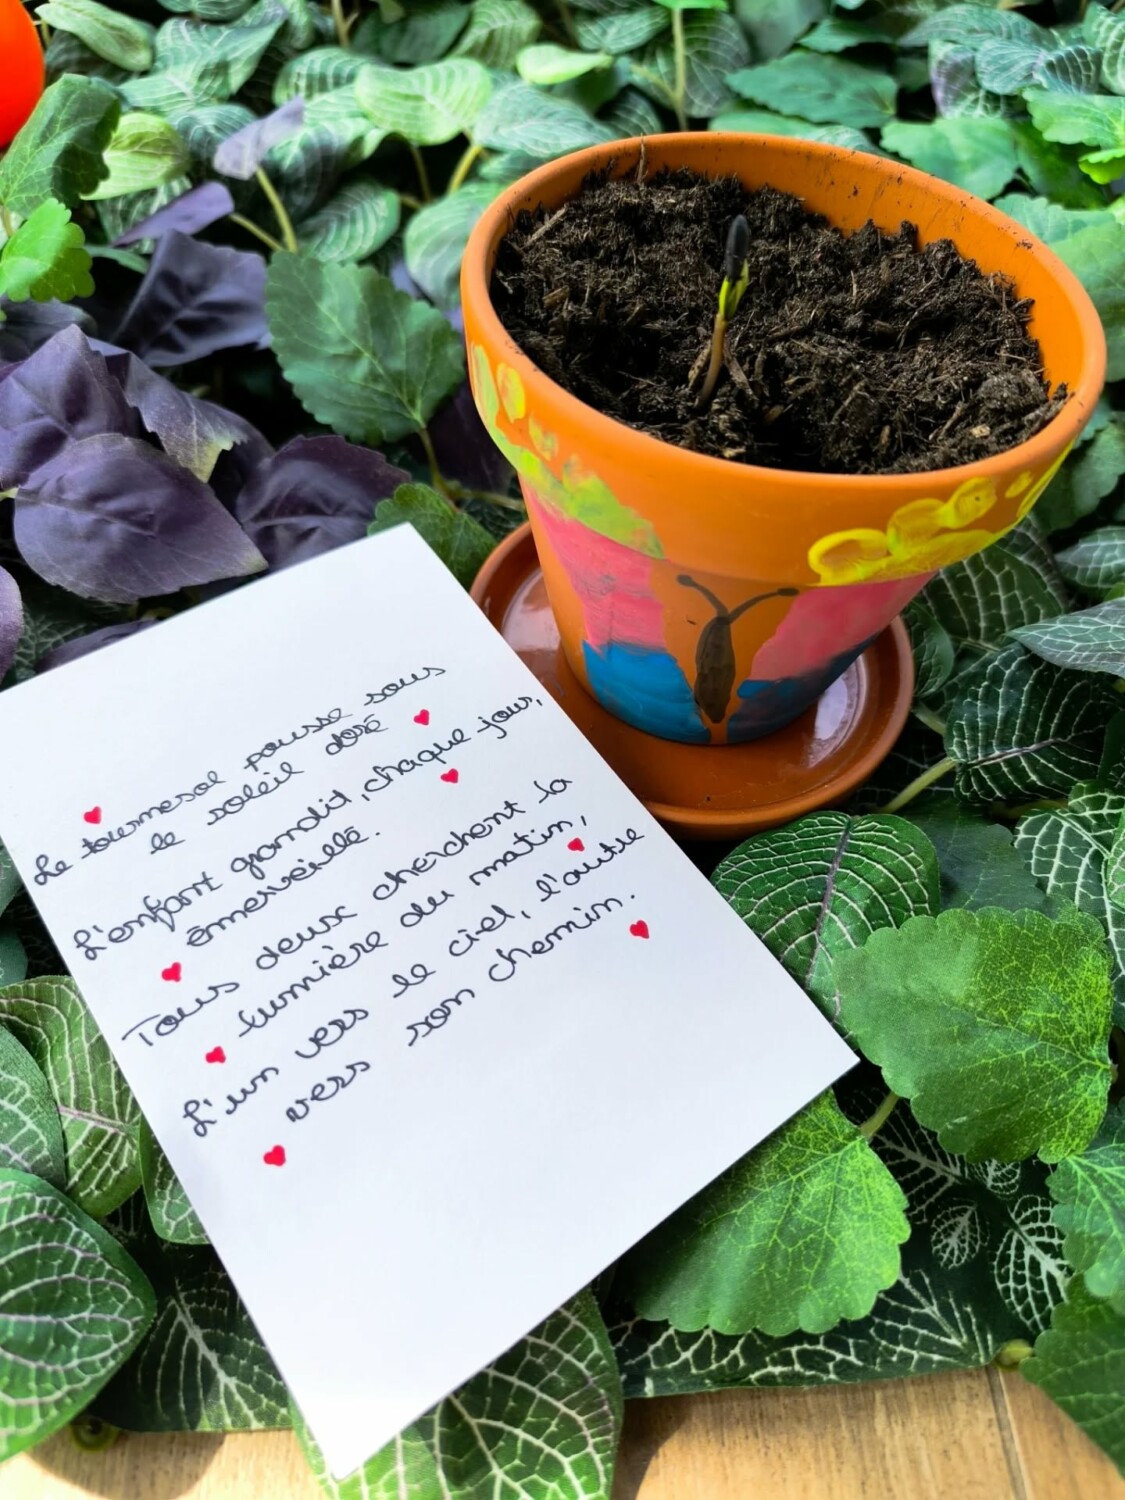 Le tournesol pousse sous
le soleil doré
L'enfant grandit, chaque jour,
émerveillé.
Tous deux cherchent la
lumière du matin,
L'un vers le ciel, l'autre
vers son chemin.